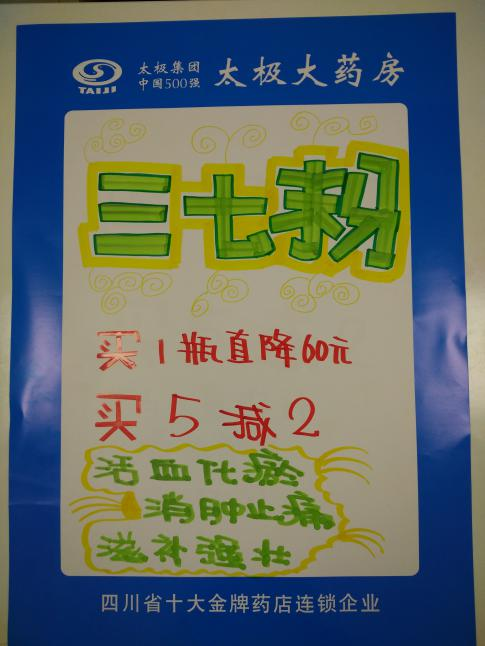 TAIJI
太极集团
中国500强
太极大药房
三七粉
买1瓶直降60元
买5减2
活血化瘀
消肿止痛
滋补强壮
四川省十大金牌药店连锁企业